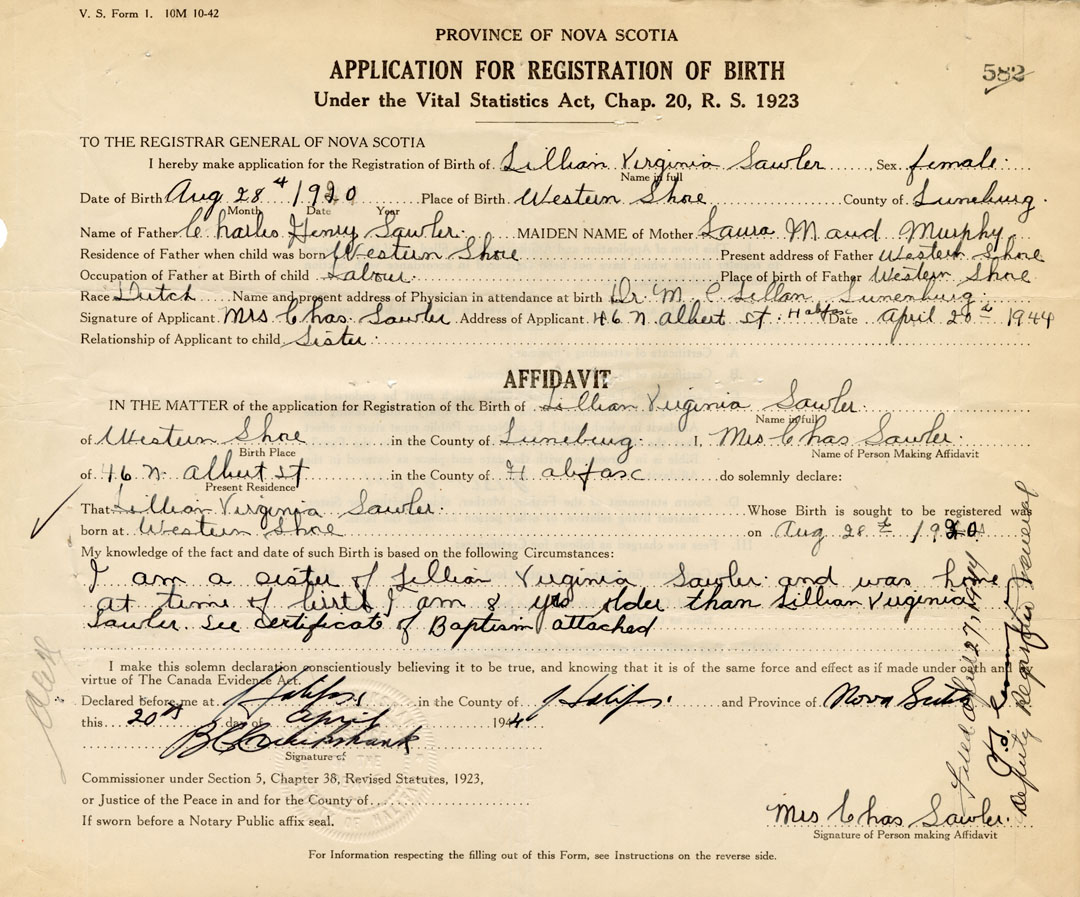 V. S. Form 1. 10M 10-42
PROVINCE OF NOVA SCOTIA
APPLICATION FOR REGISTRATION OF BIRTH
582
Under the Vital Statistics Act, Chap. 20, R. S. 1923
TO THE REGISTRAR GENERAL OF NOVA SCOTIA
I hereby make application for the Registration of Birth of Lillian Virginia Sawler Sex female
Name in full
Date of Birth Aug 28th 1920 Place of Birth Western Shoe County of Luneburg.
Month Date Year
Name of Father Charles Henry Sawler. MAIDEN NAME of Mother Laura Maud Murphy
Residence of Father when child was born Western Shoe Present address of Father Western Shore
Occupation of Father at Birth of child Labour. Place of birth of Father Western Shoe
Race Dutch Name and present address of Physician in attendance at birth Dr. Mc Lellan Lunenburg.
Signature of Applicant Mrs Chas. Sawler Address of Applicant 46 N. Albert St. Halifasc Date April 20th 1944
Relationship of Applicant to child Sister.
AFFIDAVIT
IN THE MATTER of the application for Registration of the Birth of Lillian Virginia Sawler.
Name in full
of Western Shoe in the County of Luneburg. I, Mrs Chas Sawler.
Birth Place Name of Person Making Affidavit
of 46 N. Albert St in the County of Halifasc do solemnly declare:
Present Residence
That Lillian Virginia Sawler. Whose Birth is sought to be registered was
born at Western Shoe on Aug 28th 1920
My knowledge of the fact and date of such Birth is based on the following Circumstances:
I am a sister of Lillian Virginia Sawler and was home
at time of birth, I am 8 yrs older than Lillian Virginia
Sawler. See certificate of Baptism attached
I make this solemn declaration conscientiously believing it to be true, and knowing that it is of the same force and effect as if made under oath and by
virtue of The Canada Evidence Act.
Declared before me at Halifax, in the County of Halifax. and Province of Nova Scotia
this 20th day of April 1944
Signature of
Commissioner under Section 5, Chapter 38, Revised Statutes, 1923,
or Justice of the Peace in and for the County of
If sworn before a Notary Public affix seal.
Mrs Chas Sawler.
Signature of Person making Affidavit
For Information respecting the filling out of this Form, see Instructions on the reverse side.
Filed April 27, 1944
Deputy Registrar General